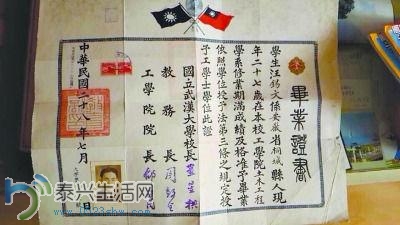 畢業證書
學生汪錫文係安徽省桐城縣人現
年二十七歲在本校工學院土木工程
學系修業期滿成績及格准予畢業
依照學位授予法第三條之規定授
予工學士學位此證
國立武漢大學校長
教務長
工學院院長
中華民國二十八年七月 日
泰兴生活网